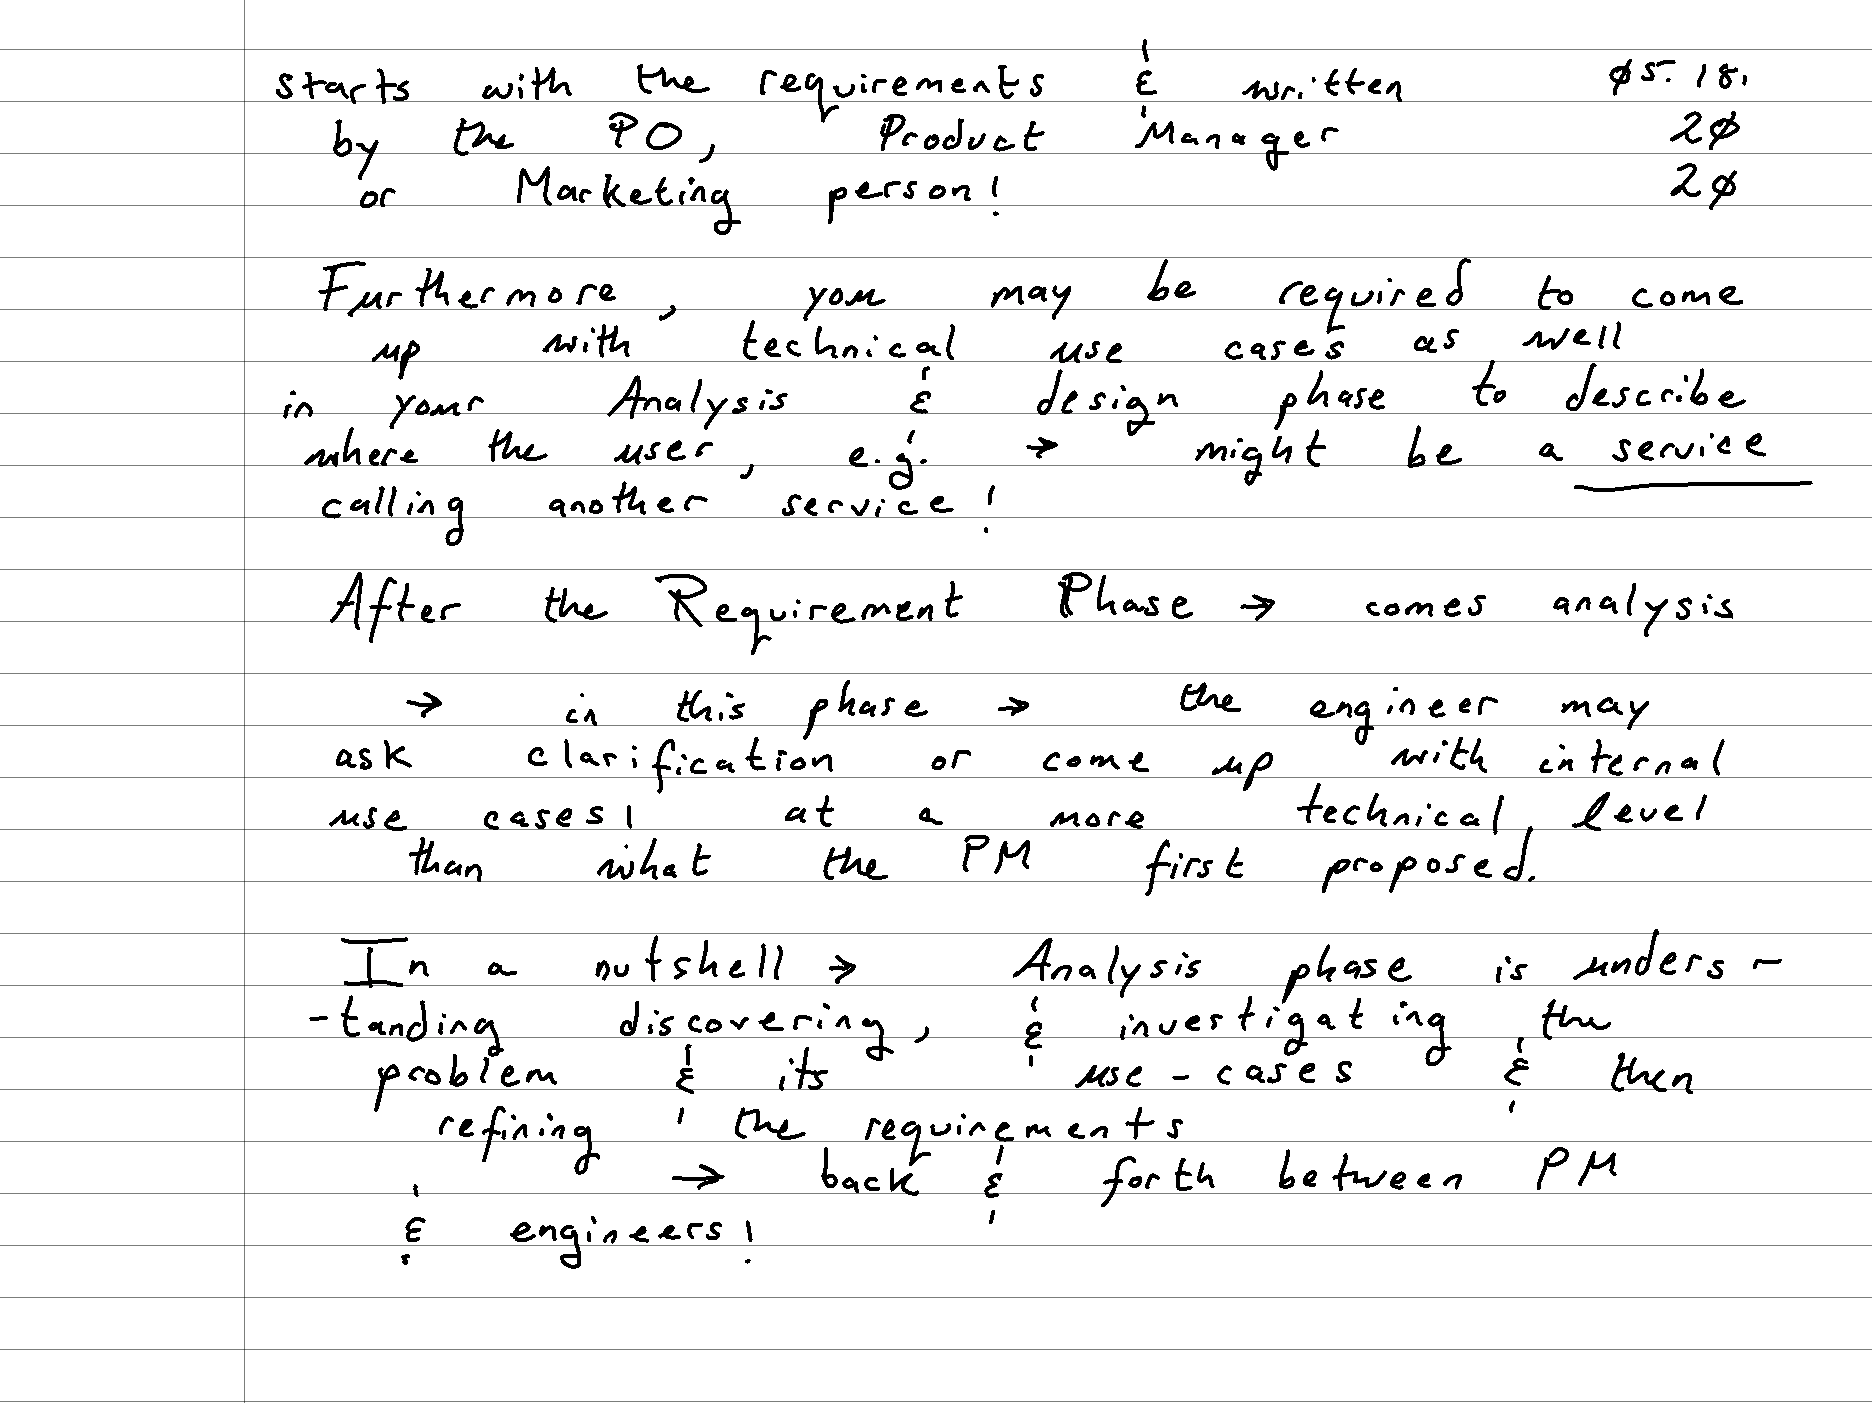 starts with the requirements & written ø5.18.
by the PO, Product Manager 2ø
or Marketing person! 2ø
Furthermore, you may be required to come
up with technical use cases as well
in your Analysis & design phase to describe
where the user, e.g. → might be a service
calling another service!
After the Requirement Phase → comes analysis
→ in this phase → the engineer may
ask clarification or come up with internal
use cases! at a more technical level
than what the PM first proposed.
In a nutshell → Analysis phase is unders-
-tanding discovering, & investigating the
problem & its use-cases & then
refining the requirements
→ back & forth between PM
& engineers!